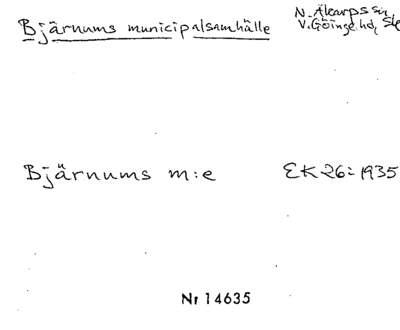 Bjärnums municipalsamhälle
N. Åkarps sn
V. Göinge hd, Sk
Bjärnums m:e
EK 26: 1935
Nr 14635